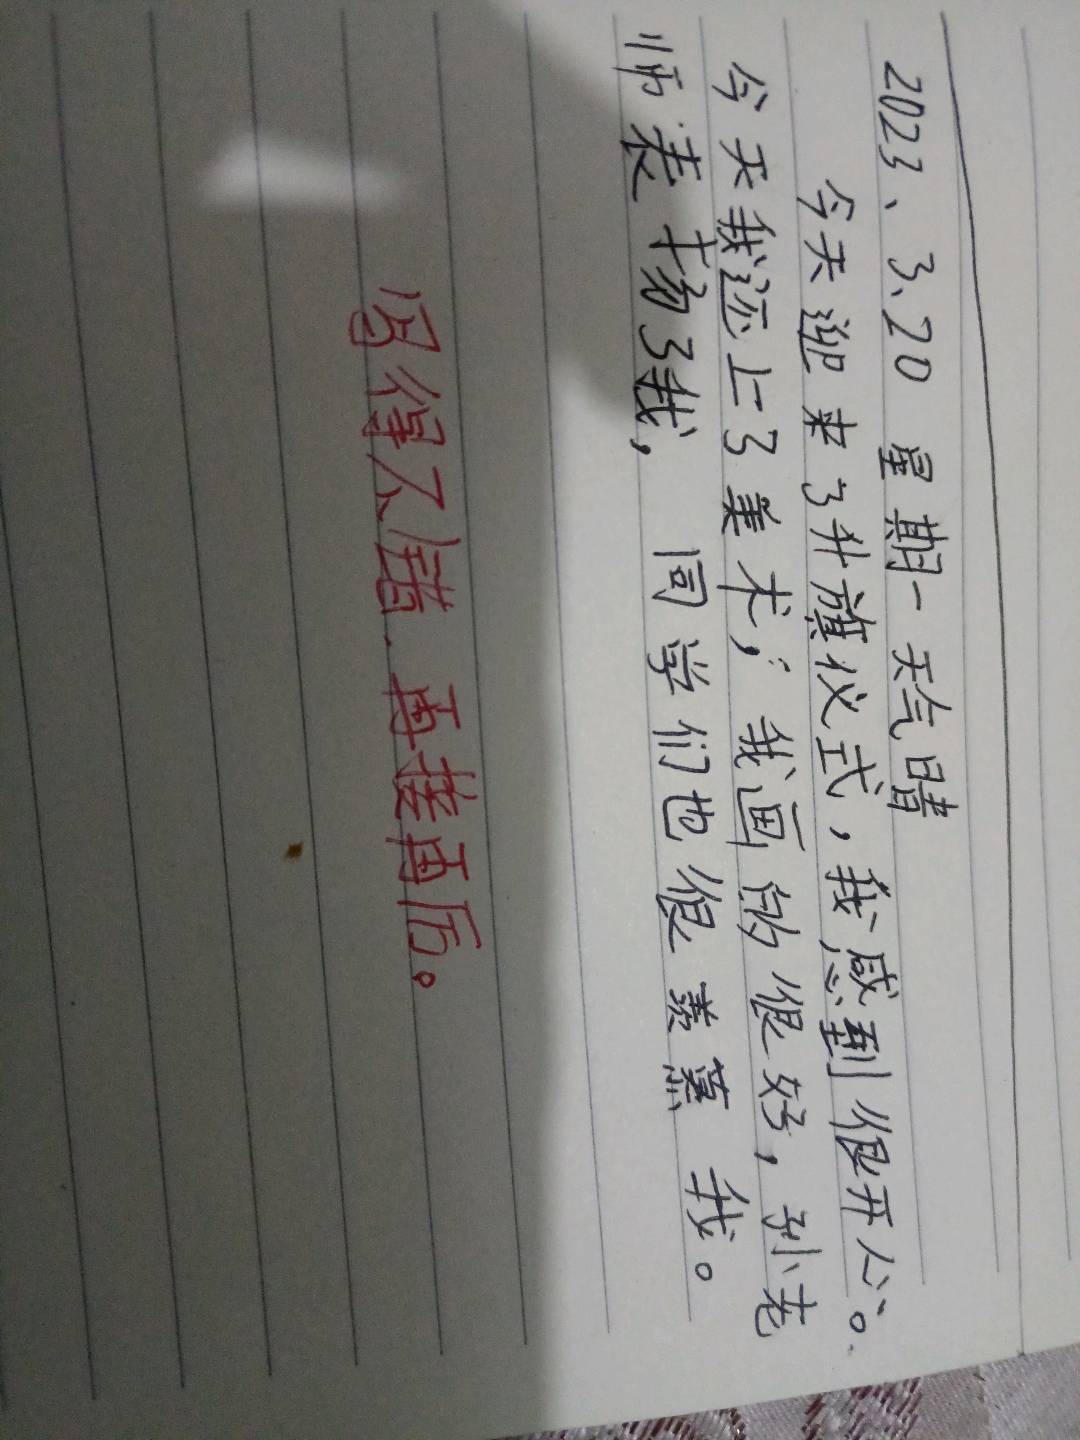 2023、3、20 星期一 天气晴
今天迎来了升旗仪式，我感到很开心。
今天我还上了美术，我画的很好，孙老
师表扬了我，同学们也很羡慕我。
写得不错.再接再厉。